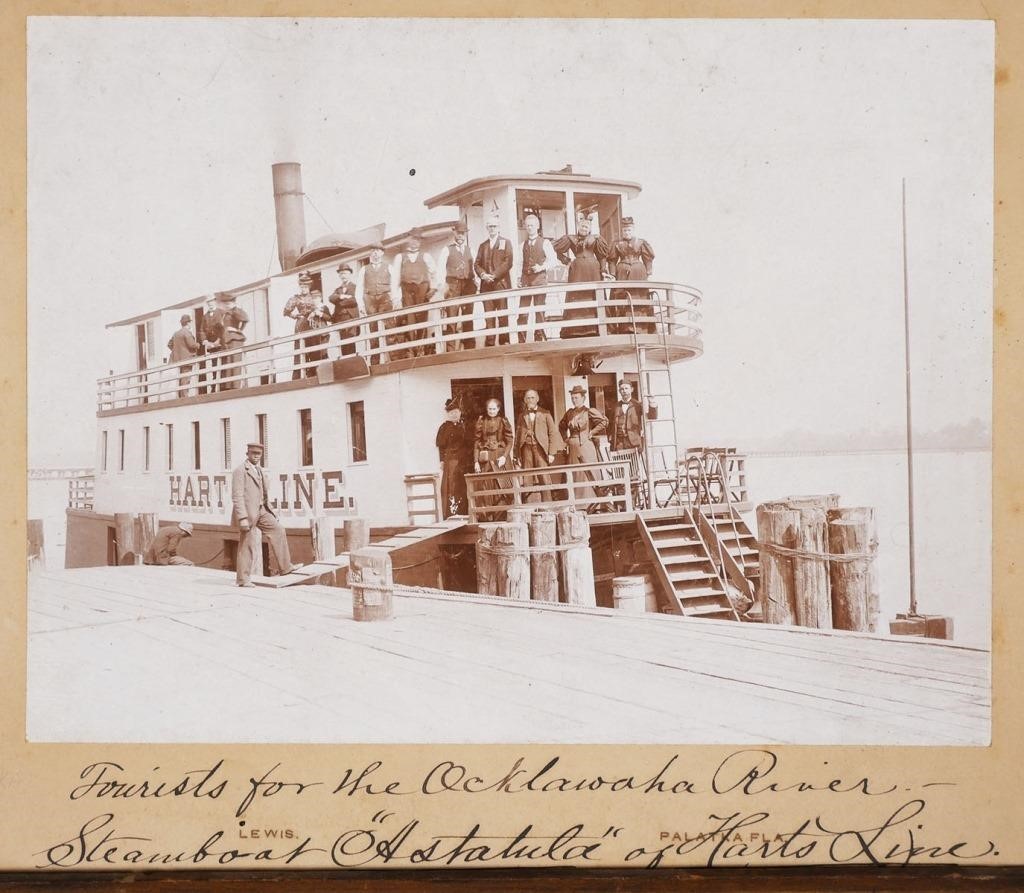 HART LINE.
Tourists for the Ocklawaha River. –
LEWIS. PALATKA FLA.
Steamboat "Astatula" of Harts Line.